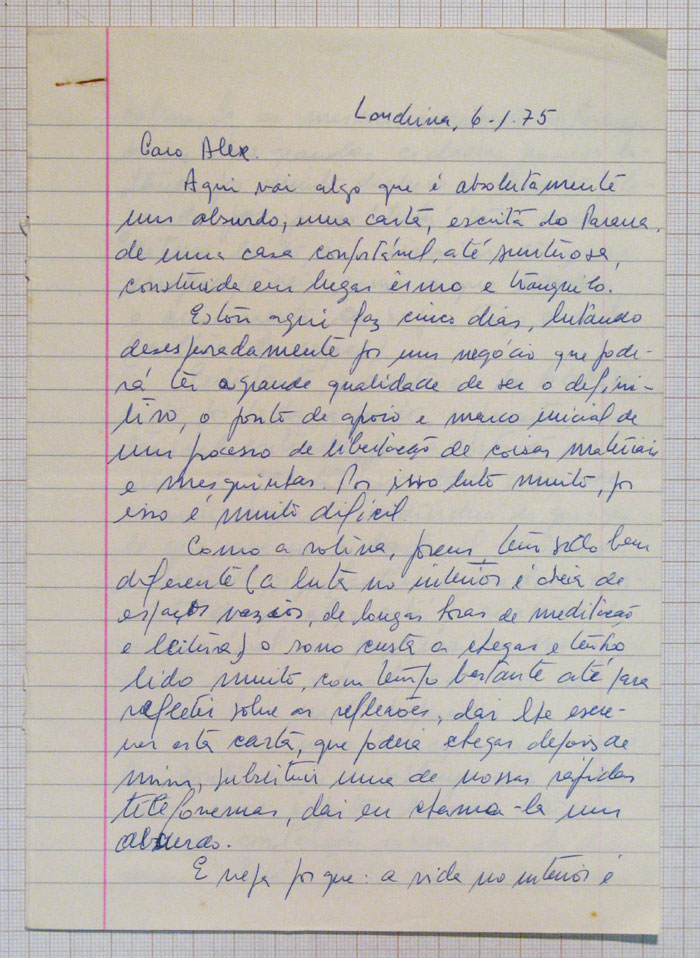 Londrina, 6-1-75
Caro Alex.
Aqui vai algo que é absolutamente
um absurdo, uma carta, escrita do Parana,
de uma casa confortável, até suntuosa,
construida em lugar êrmo e tranquilo.
Estou aqui faz cinco dias, lutando
desesperadamente por um negócio que pode-
rá ter a grande qualidade de ser o defini-
tivo, o ponto de apoio e marco inicial de
um processo de libertação de coisas materiais
e mesquinhas. Por isso luto muito, por
isso é muito difícil.
Como a rotina, porem, tem sido bem
diferente (a luta no interior é cheia de
espaços vazios, de longas horas de meditação
e leitura) o sono custa a chegar e tenho
lido muito, com tempo bastante até para
refletir sobre as reflexões, daí lhe escre-
ver esta carta, que poderá chegar depois de
mim, substituir uma de nossas rápidas
telefonemas, daí eu chama-la um
absurdo.
E veja por que: a vida no interior é